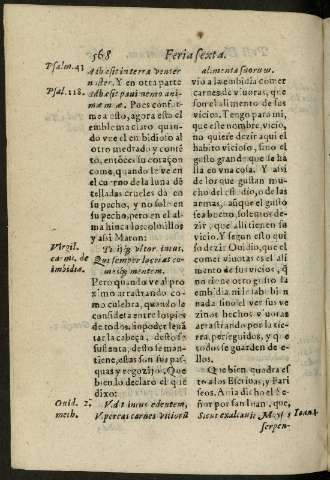 568
Feria sexta.
Psalm. 43
adhæsit in terra venter
noster. Y en otra parte
Psal. 118.
adhæsit pauimento ani
ma mea. Pues confir-
mea esto, agora esto el
emblema claro quan-
do vee el embidioso al
otro medrado y conté
to, entôces su coraçon
come, quando le ve en
el cuerno de la luna dô
telladas crueles dà en
su pecho, y no solo en
su pecho, pero en el al-
ma hinca los colmillos
y assi Maron:
Virgil.
car. nu. de
inuidia.
intus,
Qui semper laceras co-
mesq; mentem.
Pero quando ve al pro
ximo arrastrando co-
mo culebra, quando le
considera entre los pies
de todos, sin poder leuã
tar la cabeça, desto se
sustenta, desto se man-
tiene, estas son sus pas-
quas y regozijo. Que
bien lo declaro el que
dixo:
Ouid. 2.
meth.
Vidit intus edentem,
Vipereas carnes vitiorũ
alimenta suorum.
vio a la embidia comer
carnes de viuoras, que
son el alimento de los
vicios. Tengo para mi,
que este nombre, vicio,
no quiere dezir aqui el
habito vicioso, sino el
gusto grande que se ha
lla en vna cosa. Y assi
de los que gustan mu-
cho del estudio, o de las
armas, aunque el gusto
sea bueno, solemos de-
zir, que alli tienen su
vicio. Y segun esto qui
so dezir Ouidio, que el
comer viuoras es el ali
mento de sus vicios, q̃
no tiene otro gusto la
embidia, ni le sabe bien
nada sino el ver sus ve
zinos hechos viuoras
arrastrando por la tie-
rra, perseguidos, y que
todos se guarden de e-
llos.
Que bien quadra es
to a los Escribas, y Fari
seos. Auia dicho el Se-
ñor por san Iuan, que,
Sicut exaltauit Moyses
Ioan. 3
serpen-